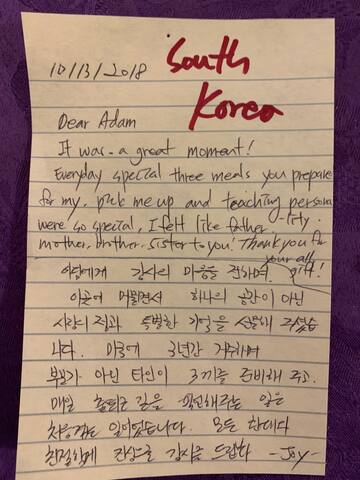 10/13/2018
South
Korea
Dear Adam
It was a great moment!
Everyday special three meals you prepare
for my, pick me up and teaching persona
were so special, I felt like father, -lity
mother, brother, sister to you! Thank you for
your all
gift!
아담에게 감사의 마음을 전하며.
이곳에 머물면서 하나의 공간이 아닌
사람의 정과 특별한 기억을 선물해 주셨습
니다. 미국에 3년간 거주하며
부모가 아닌 타인이 3끼를 준비해 주고.
매일 출퇴근 길을 해주는 일은
처음 없는 일이었습니다. 모든
친절함에 감사를 드립니다 -Joy-